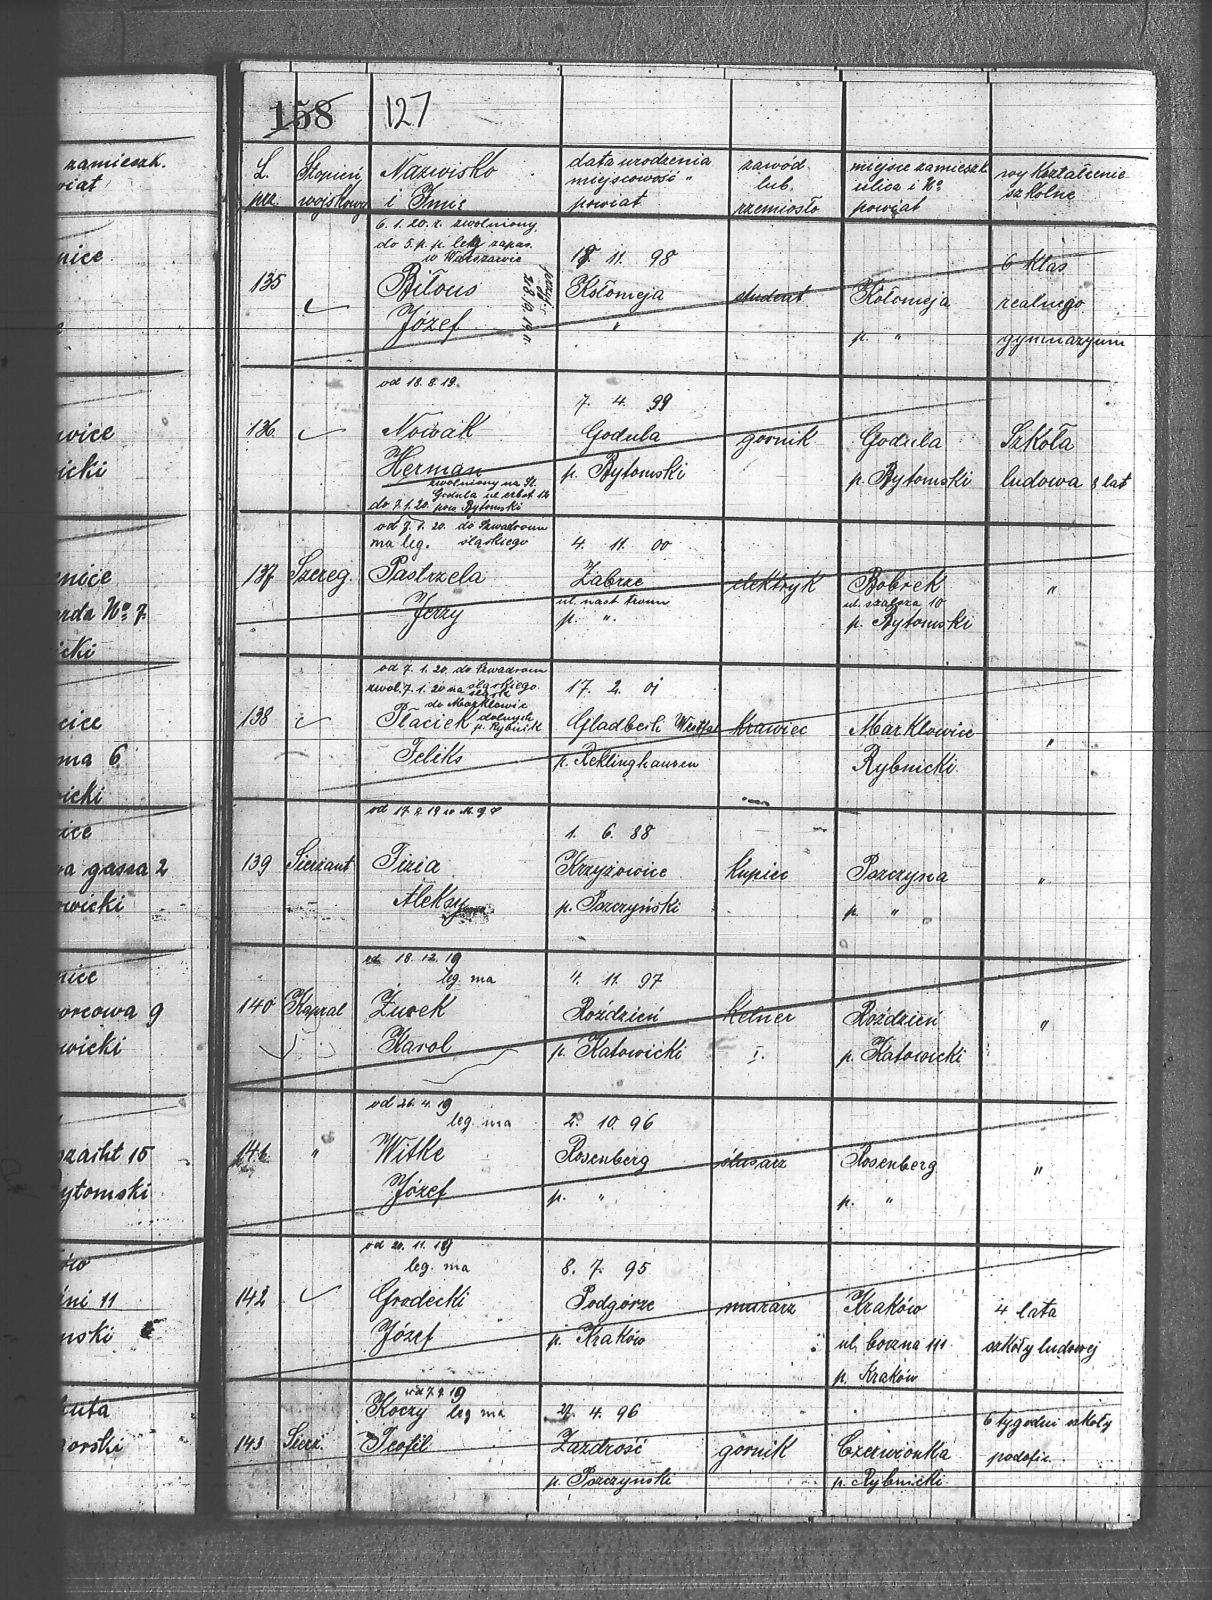 zamieszk.
nice
wice
icki
nice
rda No 7.
icki
cice
ma 6
icki
ice
wa gassa 2
wicki
nice
orcowa 9
wicki
szacht 15
ytomski
ni 11
nski
huta
gorski
158 127
L. prz.
Stopień wojskowy
Nazwisko i Imię
data urodzenia miejscowość powiat
zawód lub rzemiosło
miejsce zamieszk ulica i No powiat
wykształcenie szkolne
6. 1. 20. r. zwolniony
do 5. p. p. leg. zapas.
w Warszawie
18 11. 98
6 klas
135 Biłous Kołomeja student Kołomeja realnego
Józef " p. " gymnazyum
od 18. 8. 19.
7. 4. 99
136. Nowak Godula gornik Godula Szkoła
Herman p. Bytomski p. Bytomski ludowa 8 lat
zwolniony na Śl.
do 7. 1. 20. pow Bytomski
od 7. 1. 20. do Szwadronu
ma leg. śląskiego 4. 11. 00
137 Szereg. Pastrzela Zabrze elektryk Bobrek "
Jerzy p. ". p. Bytomski
od 7. 1. 20. do Szwadronu
zwol. 7. 1. 20 na śląskiego 17. 2. 01
do Marklowic
138 Płaciek Gladbeck Westfal krawiec Marklowice "
dolnych p. Rybnik
Feliks p. Reklinghausen Rybnicki
1. 6. 88
139 Sierżant Fizia Krzyżowice kupiec Pszczyna "
Aleksy p. Pszczyński p. "
od 18. 12. 19
leg. ma 4. 11. 97
140 Kapral Żurek Roździeń kelner Roździeń "
Karol p. Katowicki I. p. Katowicki
od 26. 4. 19
leg. ma 2. 10. 96
141. " Witke Rosenberg ślusarz Rosenberg "
Józef p. " p. "
od 20. 11. 19
leg. ma 8. 7. 95
142 Grodecki Podgorze murarz Kraków 4 lata
Józef p. Kraków ul. boczna 111 szkoły ludowej
p. Kraków
Koczy leg ma 27. 4. 96 6 tygodni szkoły
143 Sierż. Teofil Zazdrość gornik Czerwionka podofic.
p. Pszczyński p. Rybnicki